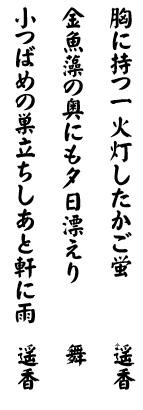 胸に持つ一火灯したかご蛍 遥香
金魚藻の奥にも夕日漂えり 舞
小つばめの巣立ちしあと軒に雨 遥香